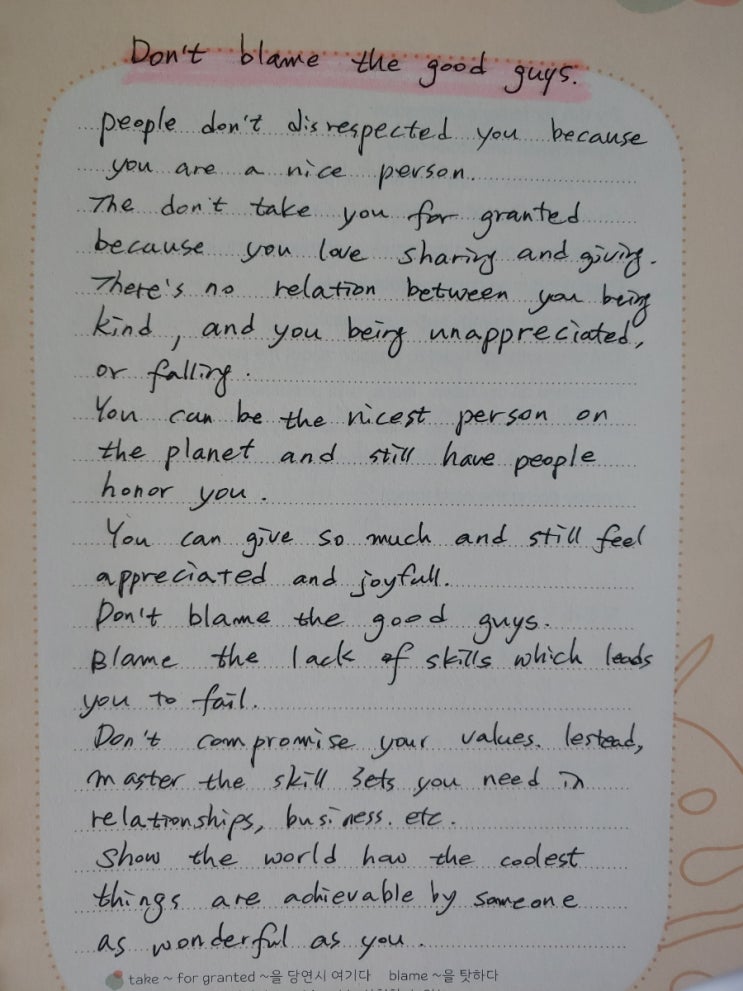 Don't blame the good guys.
people don't disrespected you because
you are a nice person.
The don't take you for granted
because you love sharing and giving.
There's no relation between you being
kind, and you being unappreciated,
or falling.
You can be the nicest person on
the planet and still have people
honor you.
You can give so much and still feel
appreciated and joyfull.
Don't blame the good guys.
Blame the lack of skills which leads
you to fail.
Don't compromise your values. Iestead,
master the skill sets you need in
relationships, business. etc.
Show the world how the coolest
things are achievable by someone
as wonderful as you.
take ~ for granted ~을 당연시 여기다 blame ~을 탓하다